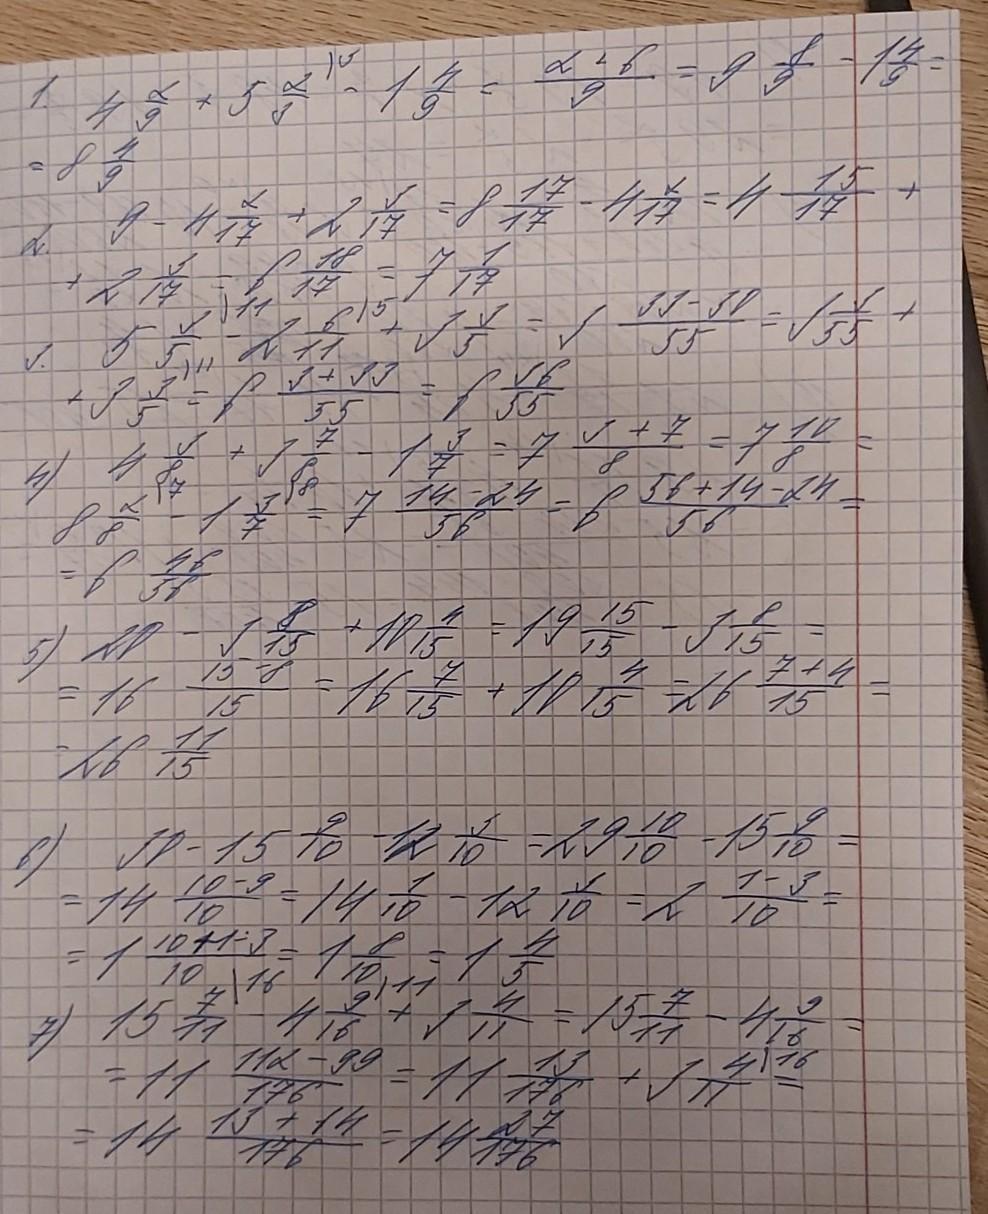 1. 4 2/9 + 5 2/3 )3 - 1 4/9 = (2+6)/9 = 9 8/9 - 1 4/9 =
= 8 4/9
2. 9 - 4 2/17 + 2 3/17 = 8 17/17 - 4 2/17 = 4 15/17 +
+ 2 3/17 = 6 18/17 = 7 1/17
3. 5 3/5 )11 - 2 6/11 )5 + 3 3/5 = 3 (33-30)/55 = 3 3/55 +
+ 3 3/5 )11 = 6 (3+33)/55 = 6 36/55
4) 4 3/8 + 3 7/8 - 1 3/7 = 7 (3+7)/8 = 7 10/8 =
8 2/8 )7 - 1 3/7 )8 = 7 (14-24)/56 = 6 (56+14-24)/56 =
= 6 46/56
5) 20 - 3 8/15 + 10 4/15 = 19 15/15 - 3 8/15 =
= 16 (15-8)/15 = 16 7/15 + 10 4/15 = 26 (7+4)/15 =
= 26 11/15
6) 30 - 15 9/10 - 12 3/10 = 29 10/10 - 15 9/10 =
= 14 (10-9)/10 = 14 1/10 - 12 3/10 = 2 (1-3)/10 =
= 1 (10+1-3)/10 = 1 8/10 = 1 4/5
7) 15 7/11 )16 - 4 9/16 )11 + 3 4/11 = 15 7/11 - 4 9/16 =
= 11 (112-99)/176 = 11 13/176 + 3 4/11 )16 =
= 14 (13+14)/176 = 14 27/176